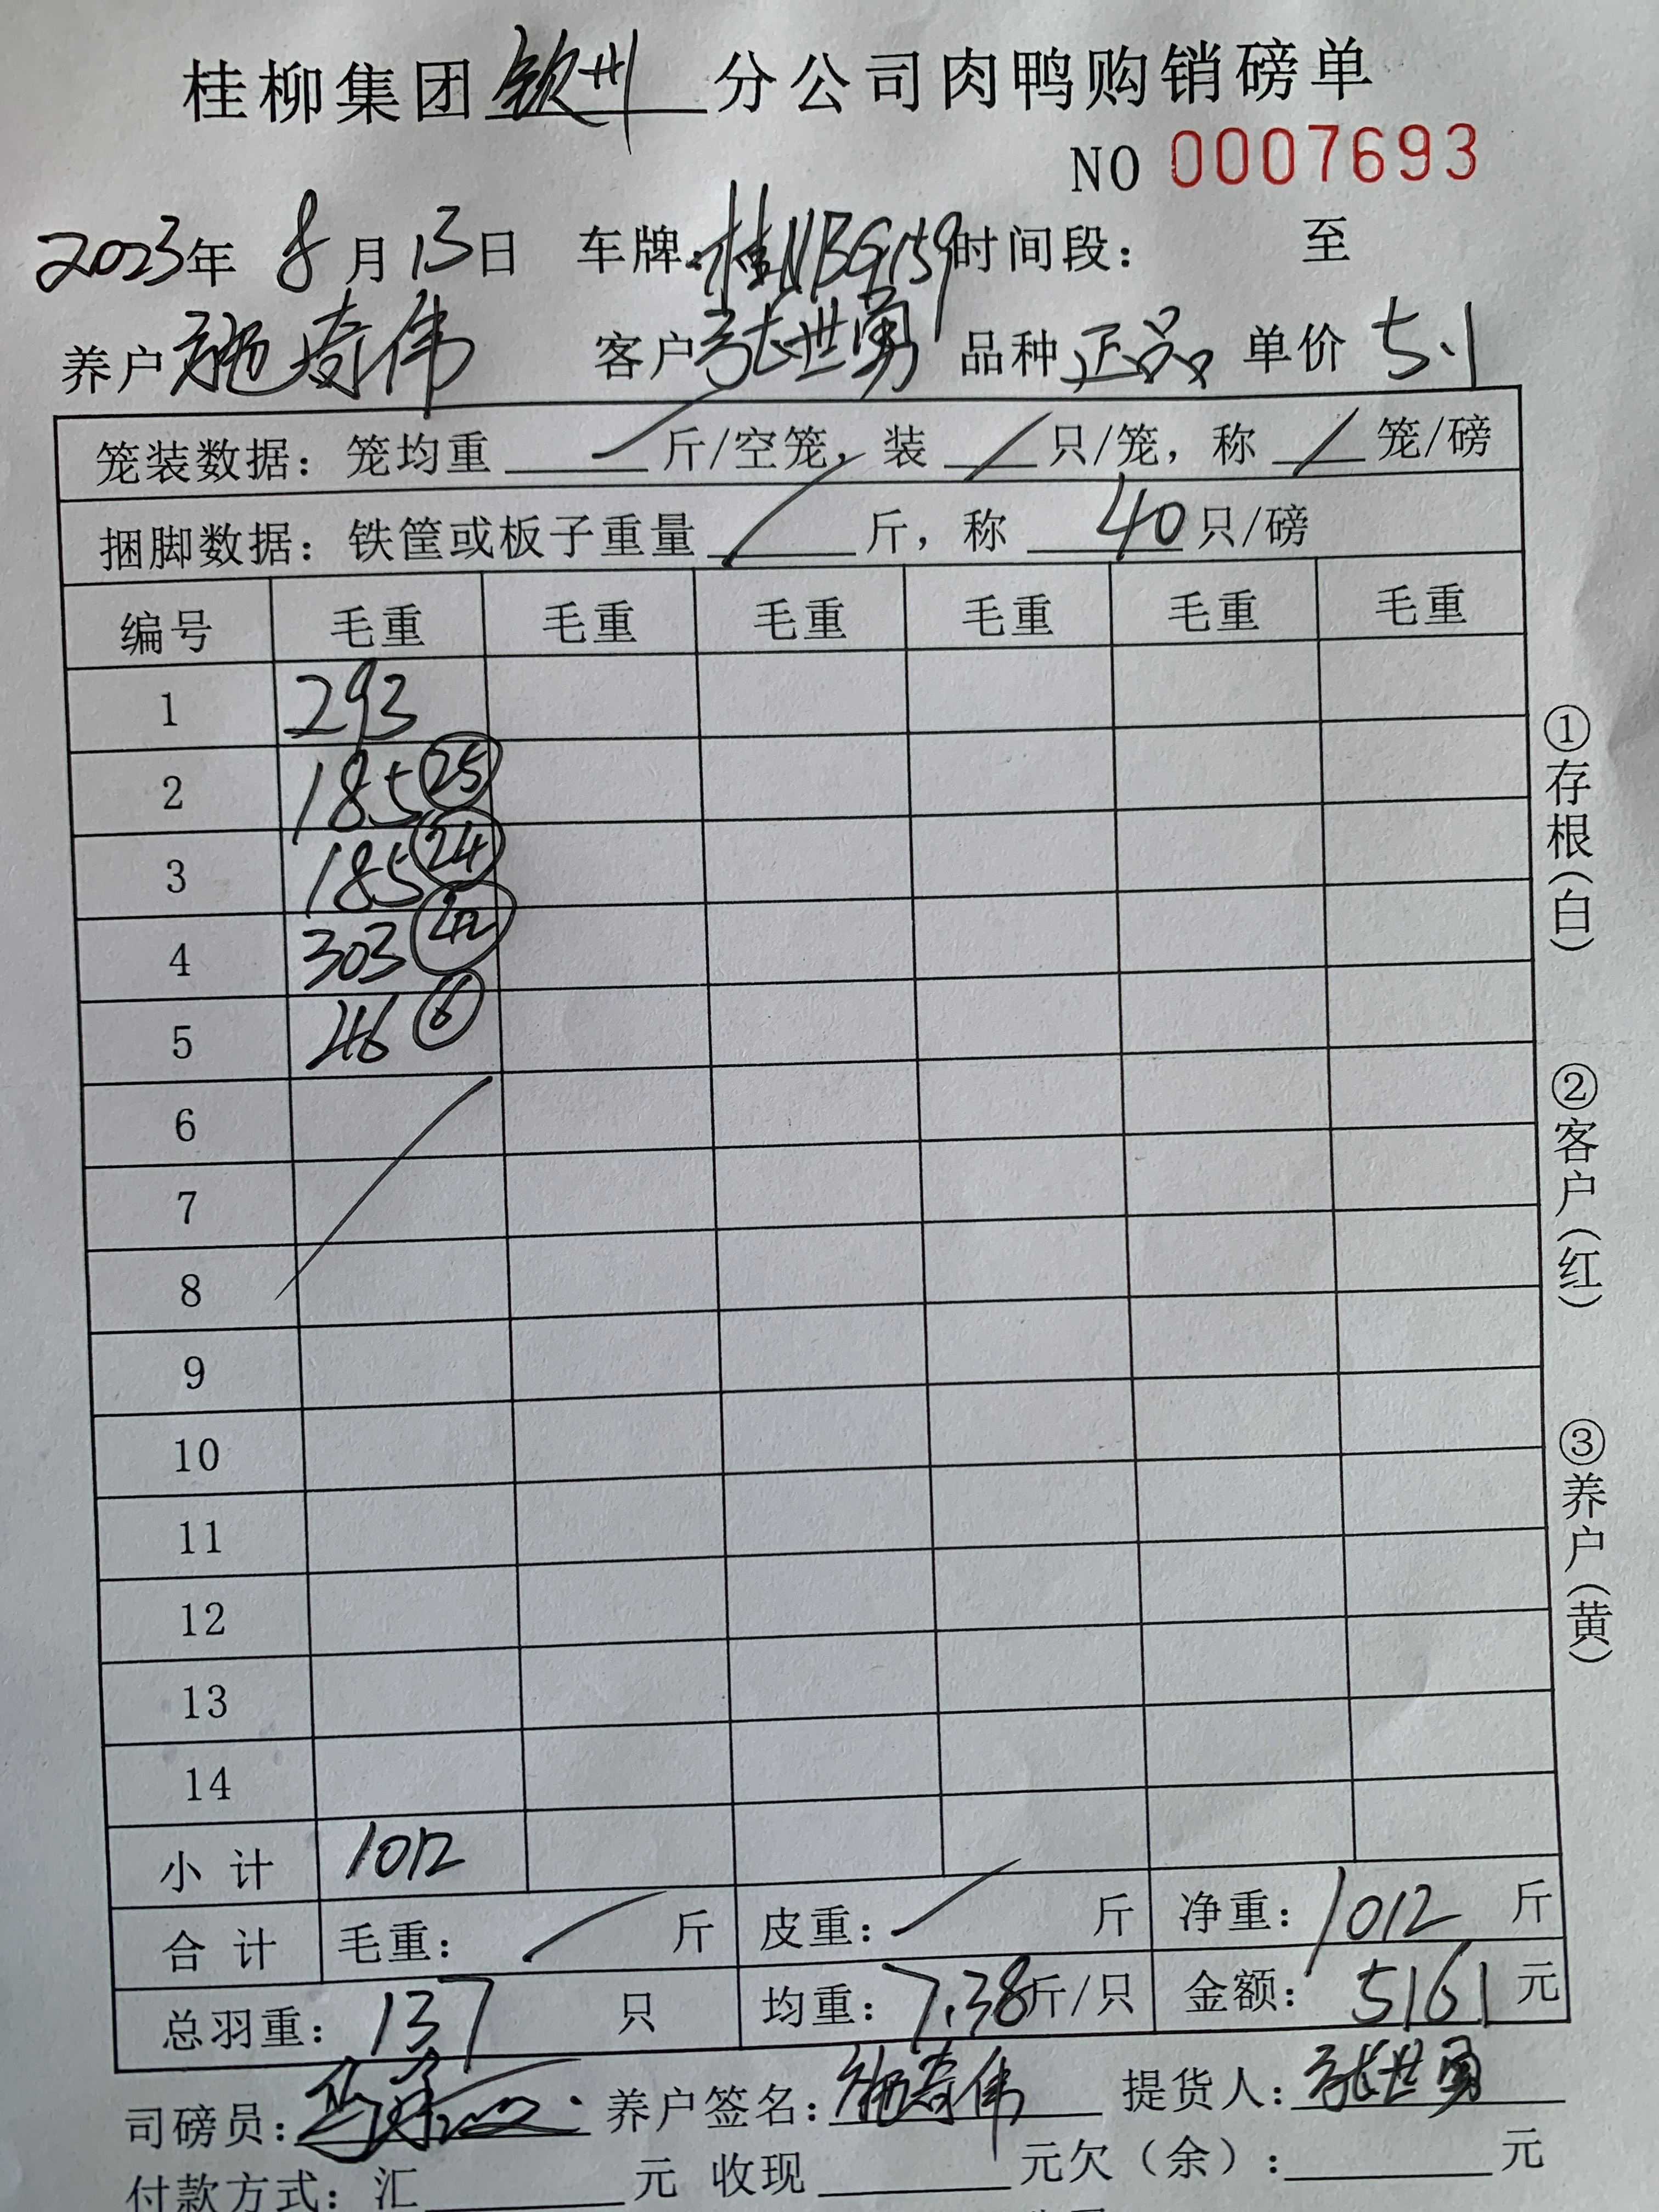 桂柳集团钦州分公司肉鸭购销磅单
NO 0007693
2023年 8月13日 车牌:桂NBG159时间段： 至
养户施奇伟 客户张世勇 品种正品 单价5.1
笼装数据：笼均重 / 斤/空笼，装 / 只/笼，称 / 笼/磅
捆脚数据：铁筐或板子重量 / 斤，称 40 只/磅
编号 毛重 毛重 毛重 毛重 毛重 毛重
1 293
2 185 25
3 185 24
4 303 42
5 46 6
6
7
8
9
10
11
12
13
14
小计 1012
合计 毛重： / 斤 皮重： / 斤 净重：1012 斤
总羽重：137 只 均重：7.38斤/只 金额：5161元
司磅员： 养户签名：施奇伟 提货人：张世勇
付款方式：汇 元 收现 元欠（余）： 元
①存根（白）
②客户（红）
③养户（黄）